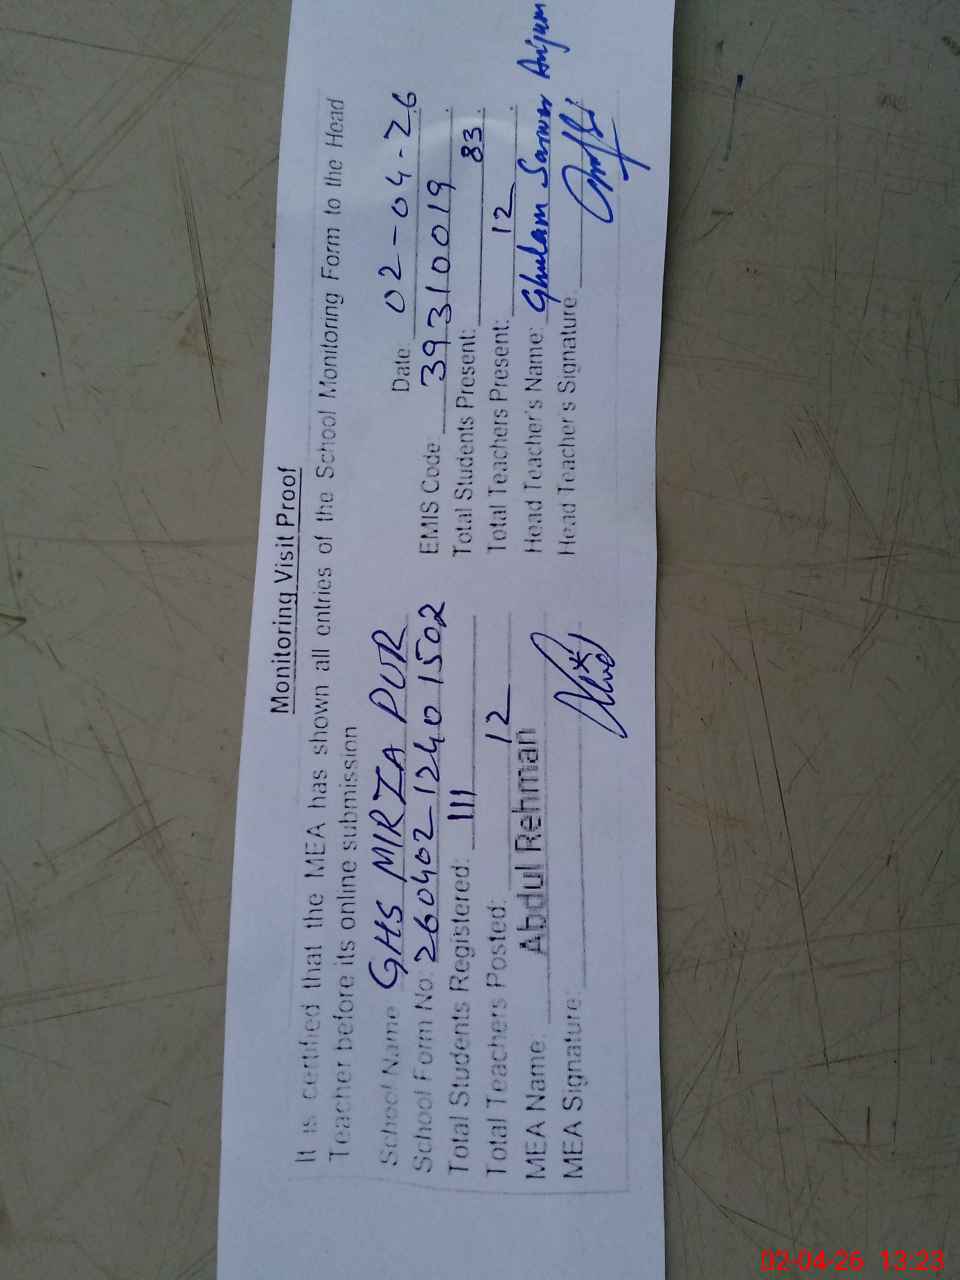 Monitoring Visit Proof
It is certified that the MEA has shown all entries of the School Monitoring Form to the Head
Teacher before its online submission
Date: 02-04-26
School Name GHS MIRZA PUR
EMIS Code: 39310019
School Form No: 260402 1240 1502
Total Students Present: 83
Total Students Registered: 111
Total Teachers Present: 12
Total Teachers Posted: 12
Head Teacher's Name: Ghulam Sarwar Anjum
MEA Name: Abdul Rehman
Head Teacher's Signature:
MEA Signature:
02-04-26 13:23